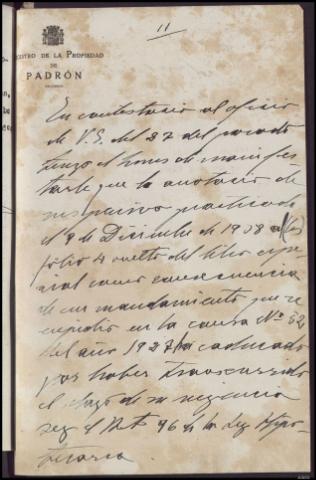 11
REGISTRO DE LA PROPIEDAD
DE
PADRÓN
En contestación al oficio
de V.S. del 27 del pasado
tengo el honor de manifes
tarle que la anotación de
suspensión practicada
el 9 de Diciembre de 1938 al
folio 4 vuelto del libro espe
cial como consecuencia
de un mandamiento que se
expidió en la causa Nº 52
del año 1937 ha caducado
por haber transcurrido
el plazo de su vigencia
seg el Art 96 de la Ley Hipo
tecaria